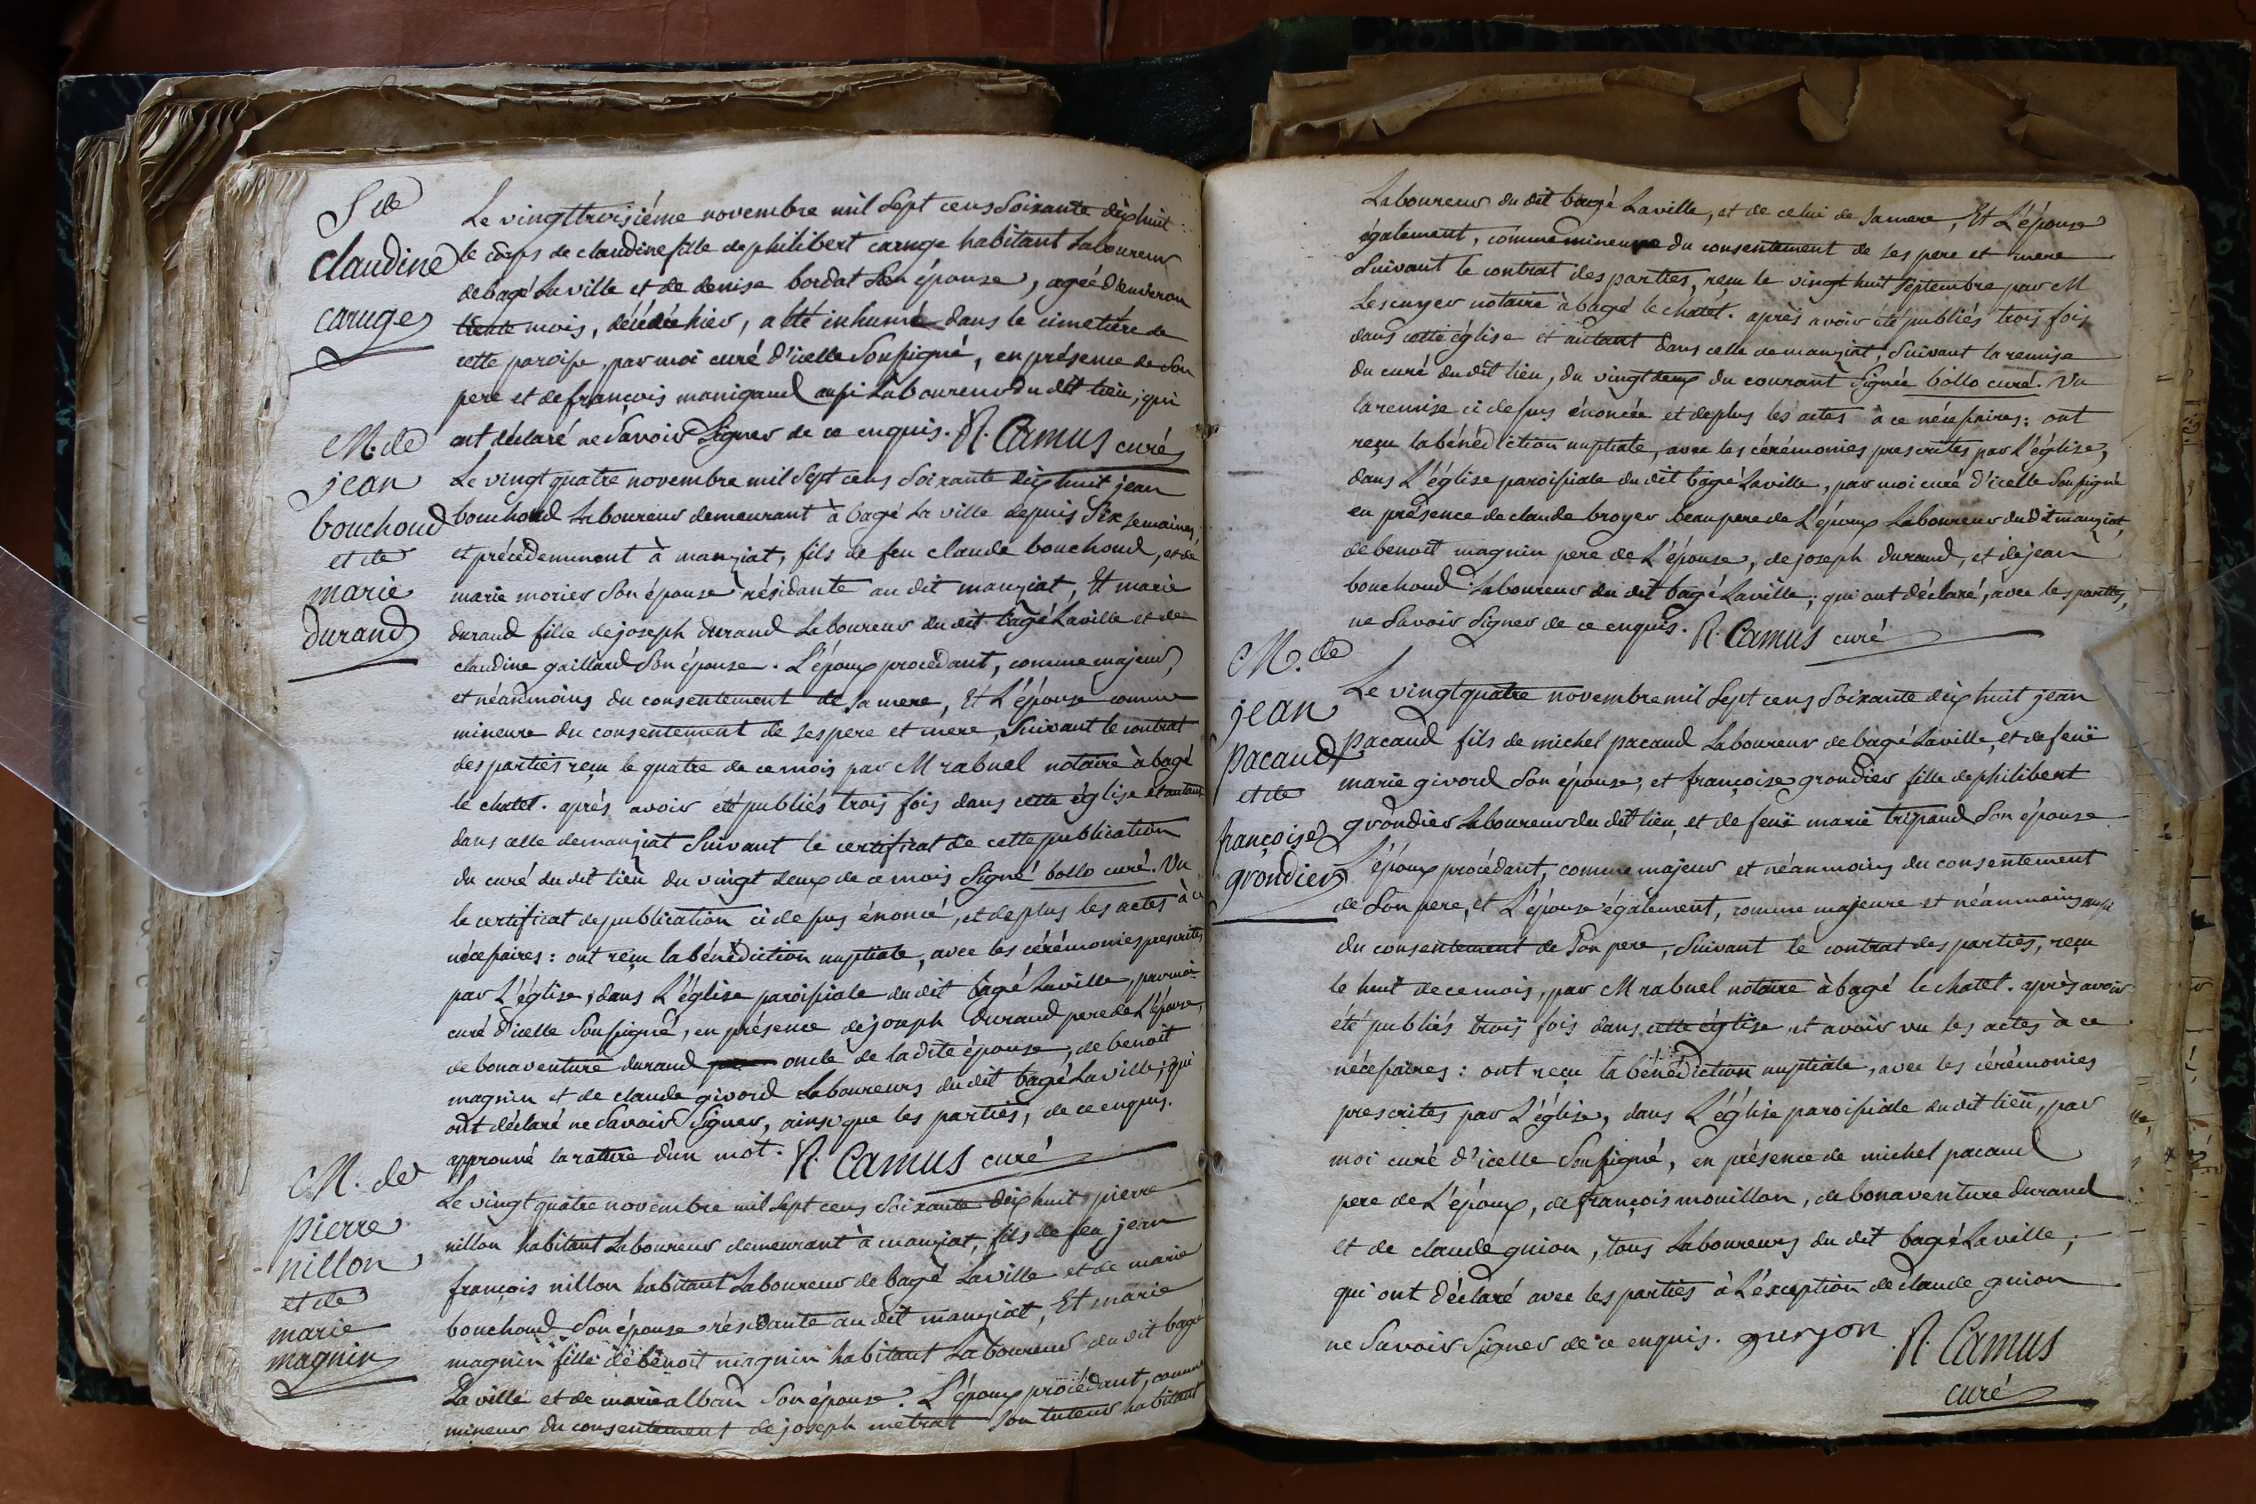 S de
claudine
caruge
Le vingt troisiéme novembre mil sept cens soixante dix huit
le corps de claudine fille de philibert caruge habitant laboureur
de bagé la ville et de denise bordat son épouse, agée d'environ
trente mois, décédée hier, a été inhumé dans le cimetiére de
cette paroisse, par moi curé d'icelle soussigné, en présence de son
pere et de françois manigaud aussi laboureur du dit lieu, qui
ont déclaré ne savoir signer de ce enquis. R. Camus curé
M. de
jean
bouchoud
et de
marie
durand
Le vingt quatre novembre mil sept cens soixante dix huit jean
bouchoud laboureur demeurant à bagé la ville depuis six semaines,
et précédemment à manziat, fils de feu claude bouchoud, et de
marie morier son épouse résidante au dit manziat, Et marie
durand fille de joseph durand laboureur du dit bagé la ville et de
claudine gaillard son épouse. L'époux procédant, comme majeur,
et néanmoins du consentement de sa mere, Et L'épouse comme
mineure du consentement de ses pere et mere, suivant le contrat
des parties reçu le quatre de ce mois par M rabuel notaire à bagé
le chatel. aprés avoir été publiés trois fois dans cette église et autant
dans celle de manziat suivant le certificat de cette publication
du curé du dit lieu du vingt deux de ce mois signé bollo curé. Vu
le certificat de publication ci dessus énoncé, et de plus les actes à ce
nécessaires: ont reçu la bénédiction nuptiale, avec les cérémonies prescrites
par L'église, dans L'église paroissiale du dit bagé la ville, par moi
curé d'icelle soussigné, en présence de joseph durand pere de L'épouse,
de bonaventure durand oncle de la dite épouse, de benoit
magnin et de claude givord laboureurs du dit bagé la ville, qui
ont déclaré ne savoir signer, ainsi que les parties, de ce enquis.
approuvé la rature d'un mot. R. Camus curé
M. de
pierre
nillon
et de
marie
magnin
Le vingt quatre novembre mil sept cens soixante dix huit pierre
nillon habitant laboureur demeurant à manziat, fils de feu jean
françois nillon habitant laboureur de bagé la ville et de marie
bouchoud son épouse résidante au dit manziat, Et marie
magnin fille de benoit magnin habitant laboureur du dit bagé
la ville et de marie alban son épouse. L'époux procédant, comme
mineur du consentement de joseph metrat son tuteur habitant
laboureur du dit bagé la ville, et de celui de sa mere, Et L'épouse
également, comme mineure du consentement de ses pere et mere
suivant le contrat des parties, reçu le vingt huit septembre par M
Lescuyer notaire à bagé le chatel. aprés avoir été publiés trois fois
dans cette église et autant dans celle de manziat, suivant la remise
du curé du dit lieu, du vingt deux du courant signée bollo curé. Vu
la remise ci dessus énoncée et de plus les actes à ce nécessaires: ont
reçu la bénédiction nuptiale, avec les cérémonies prescrites par L'église,
dans L'église paroissiale du dit bagé la ville, par moi curé d'icelle soussigné
en présence de claude broyer beau pere de L'époux laboureur du dit manziat,
de benoit magnin pere de L'épouse, de joseph durand, et de jean
bouchoud laboureur du dit bagé la ville, qui ont déclaré, avec les parties,
ne savoir signer de ce enquis. R. Camus curé
M. de
jean
pacaud
et de
françoise
grondier
Le vingt quatre novembre mil sept cens soixante dix huit jean
pacaud fils de michel pacaud laboureur de bagé la ville, et de feuë
marie givord son épouse, et françoise grondier fille de philibert
grondier laboureur du dit lieu, et de feuë marie tripaud son épouse
L'époux procédant, comme majeur et néanmoins du consentement
de son pere, et L'épouse également, comme majeure et néanmoins aussi
du consentement de son pere, suivant le contrat des parties, reçu
le huit de ce mois, par M rabuel notaire à bagé le chatel. aprés avoir
été publiés trois fois dans cette église, et avoir vu les actes à ce
nécessaires: ont reçu la bénédiction nuptiale, avec les cérémonies
prescrites par L'église, dans L'église paroissiale du dit lieu, par
moi curé d'icelle soussigné, en présence de michel pacaud
pere de L'époux, de françois mouillon, de bonaventure durand
et de claude guion, tous laboureurs du dit bagé la ville;
qui ont déclaré avec les parties à L'exception de claude guion
ne savoir signer de ce enquis. guryon R. Camus
curé